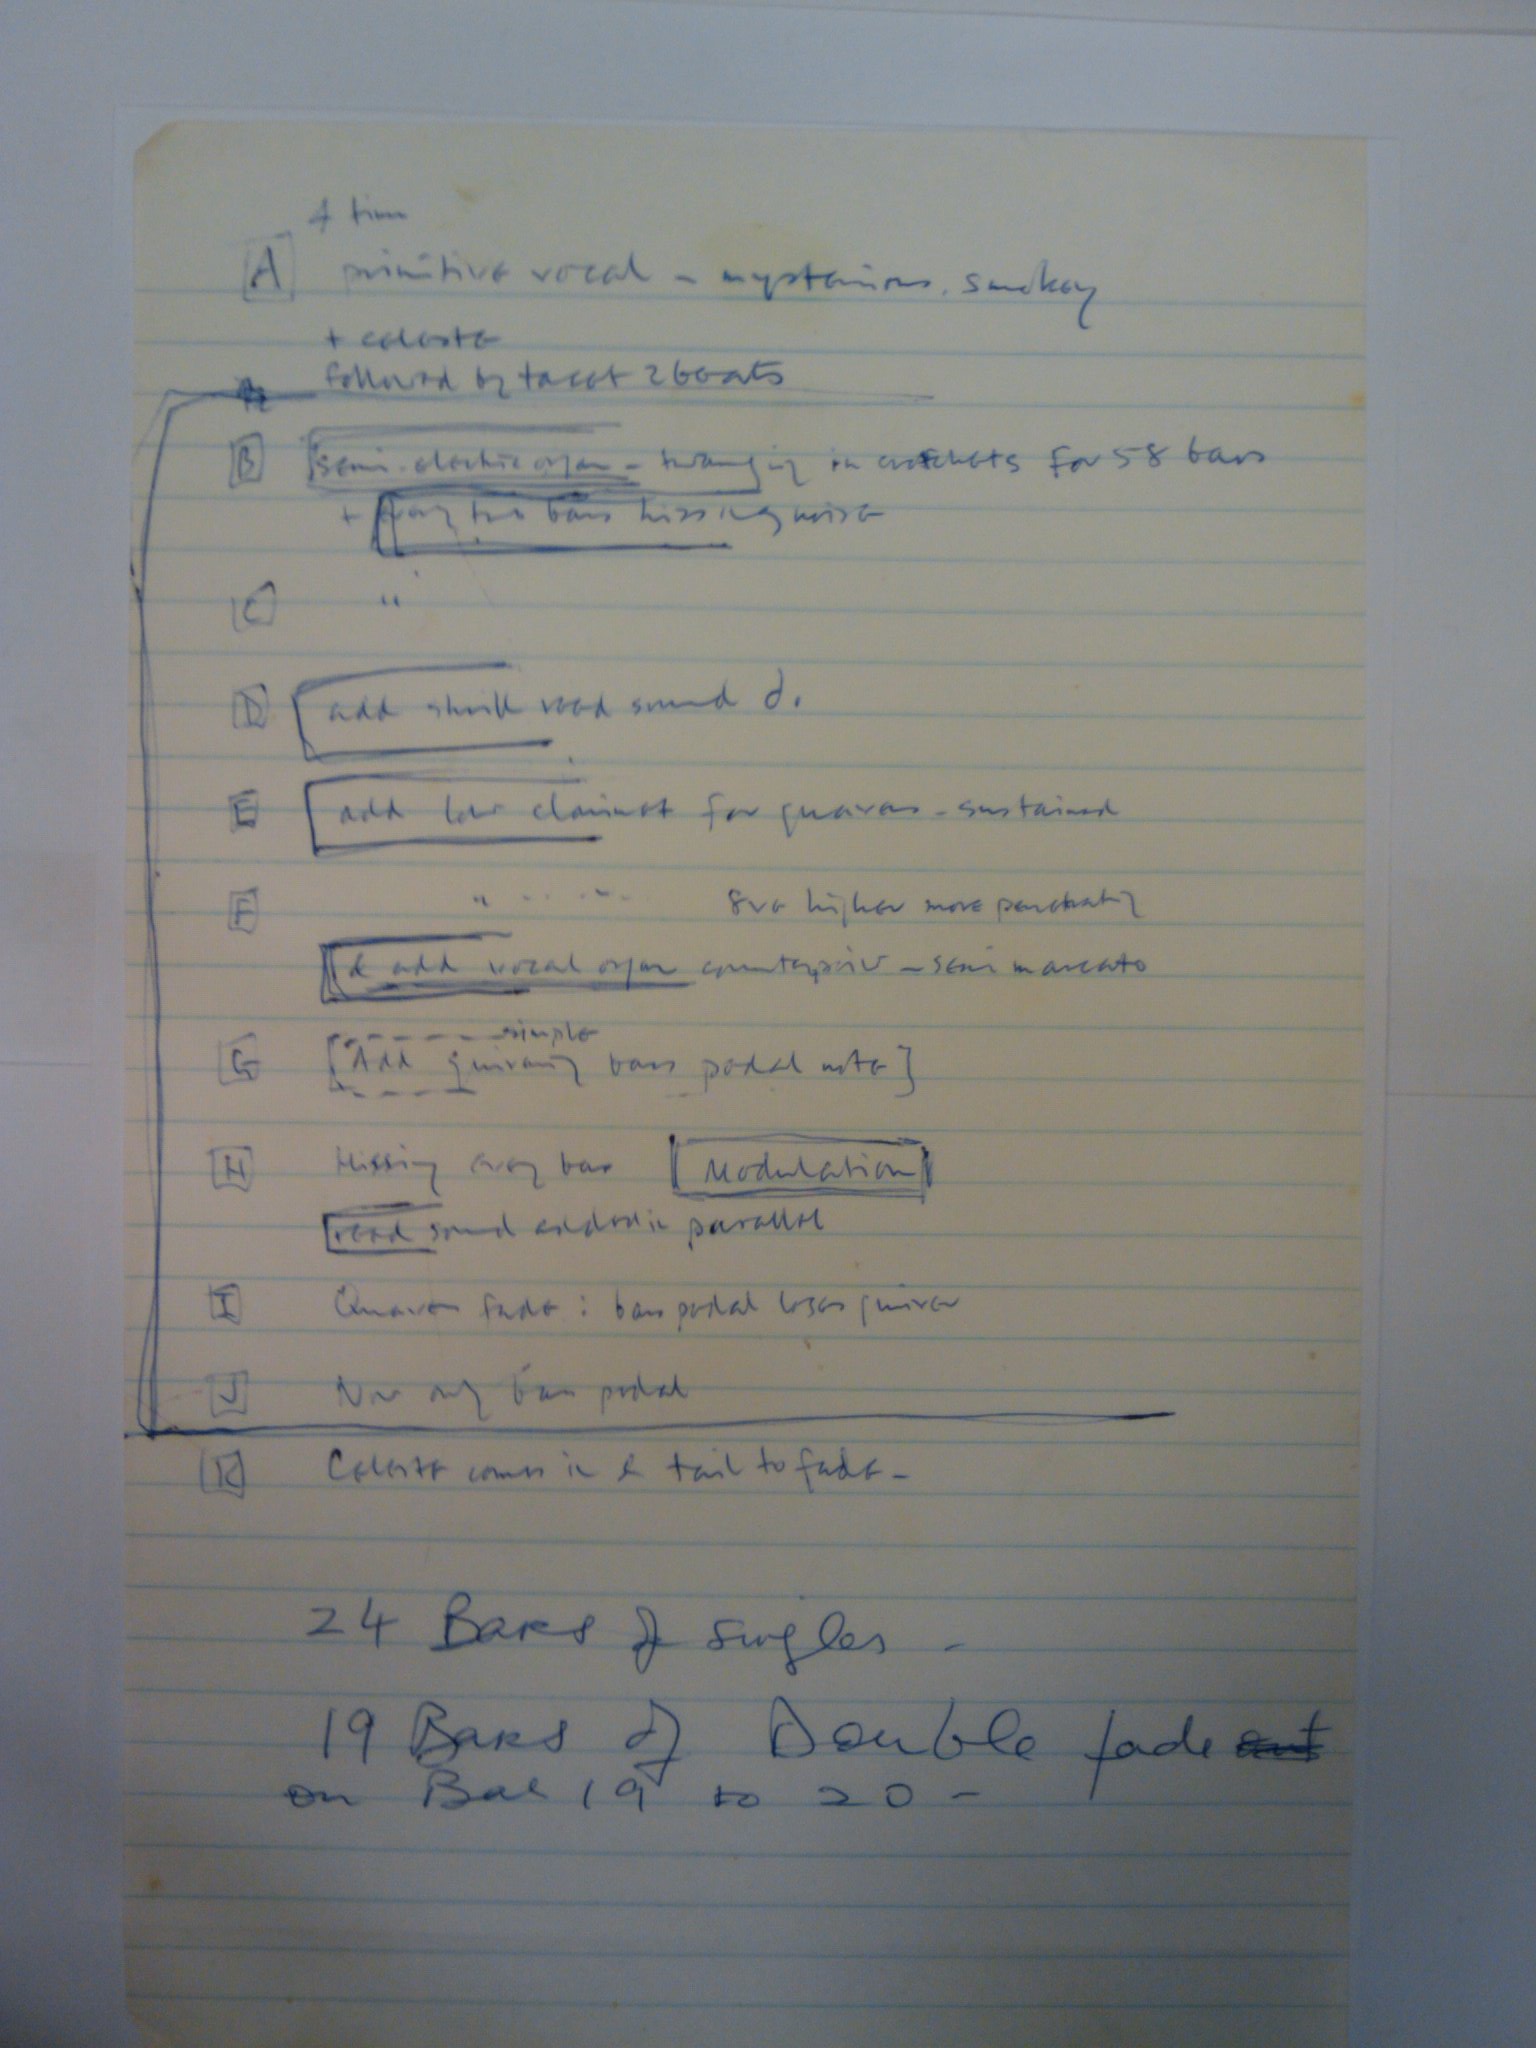 4 time
A primitive vocal - mysterious, smokey
+ celeste
followed by tacet 2 beats
B semi-electric organ - twanging in crotchets for 58 bars
+ every two bars hissing noise
C "
D add shrill reed sound d.
E add low clarinet for quavers - sustained
F " 8ve higher more penetrating
& add vocal organ counterpoint - semi marcato
simple
G [Add quivering bass pedal note]
H Hissing every bar [Modulation]
reed sound added in parallel
I Quavers fade: bass pedal loses quiver
J Now only bass pedal
K Celeste comes in & tail to fade -
24 Bars of singles -
19 Bars of Double fade
on Bar 19 to 20 -